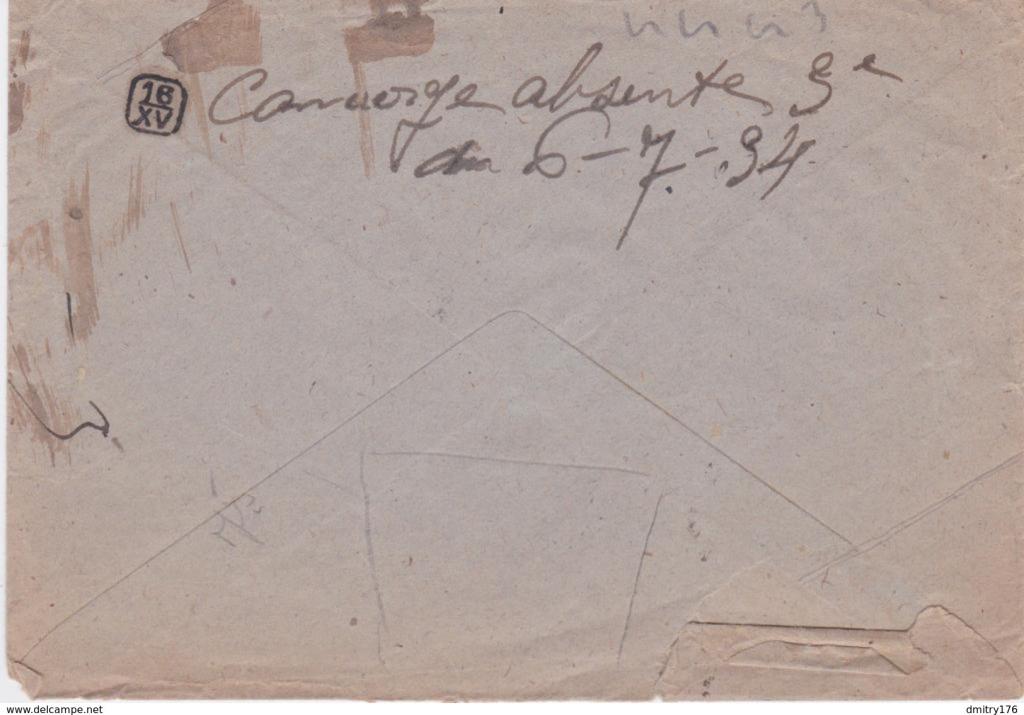 16
XV
Concierge absente 3e
du 6-7-34
www.delcampe.net
dmitry176